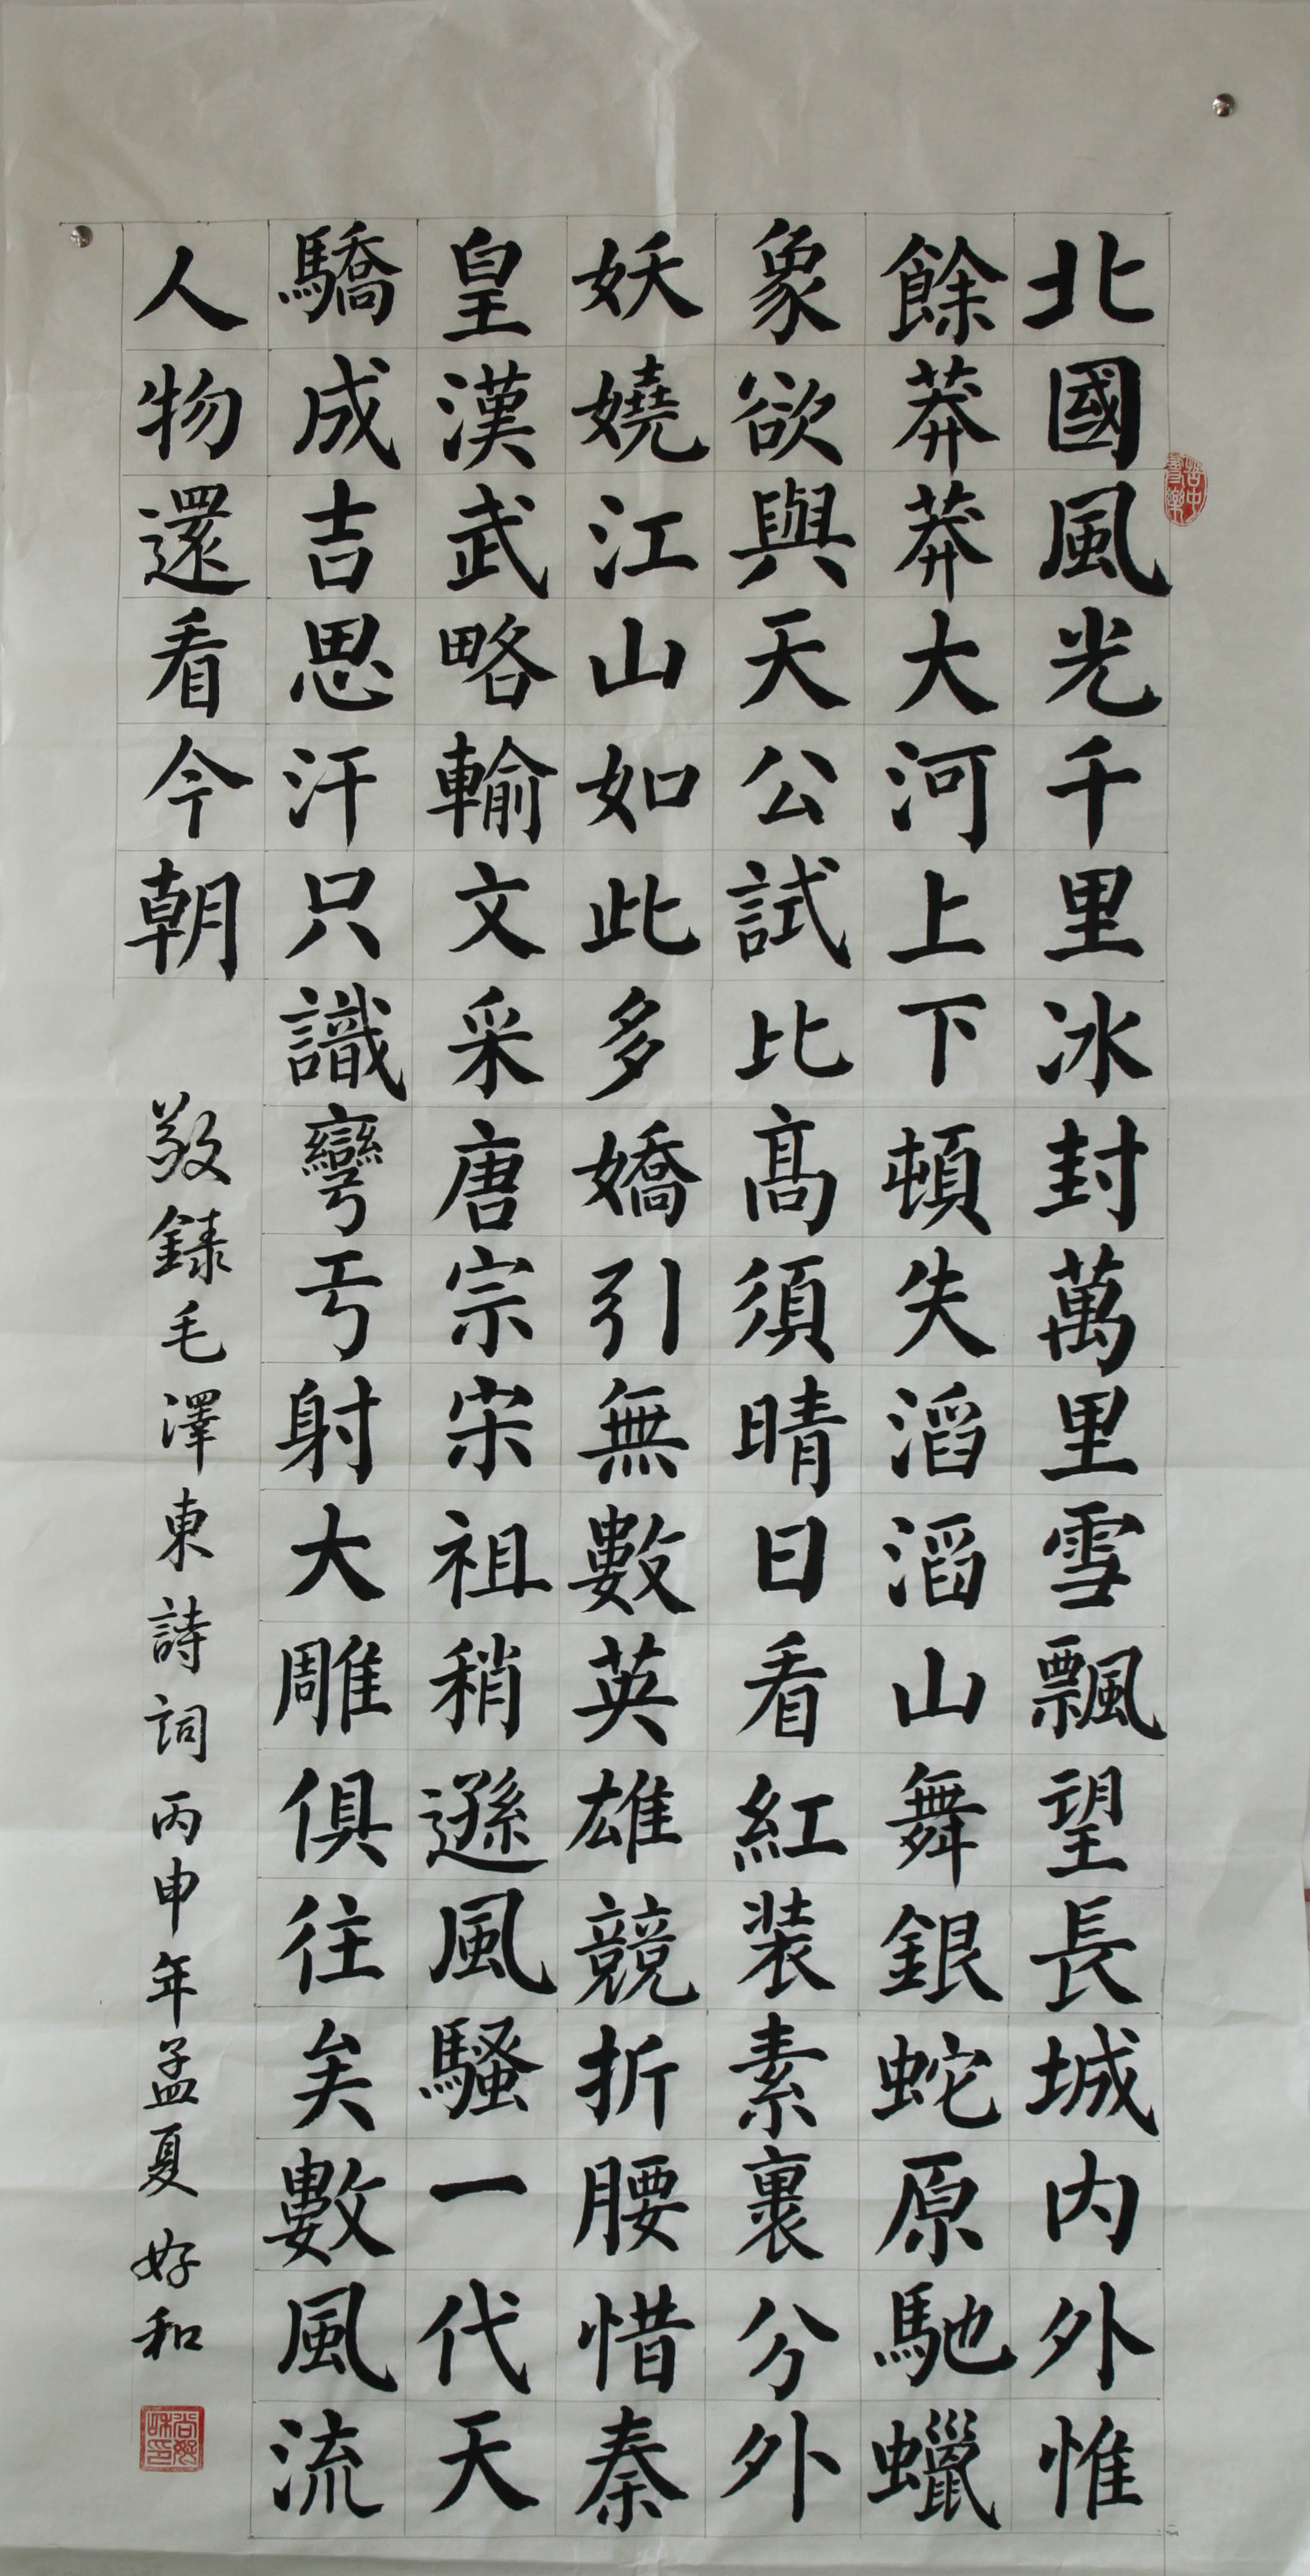 北國風光千里冰封萬里雪飄望長城内外惟
餘莽莽大河上下頓失滔滔山舞銀蛇原馳蠟
象欲與天公試比高須晴日看紅装素裹兮外
妖嬈江山如此多嬌引無數英雄競折腰惜秦
皇漢武略輸文采唐宗宋祖稍遜風騷一代天
驕成吉思汗只識彎弓射大雕俱往矣數風流
人物還看今朝
敬録毛澤東詩詞丙申年孟夏好和